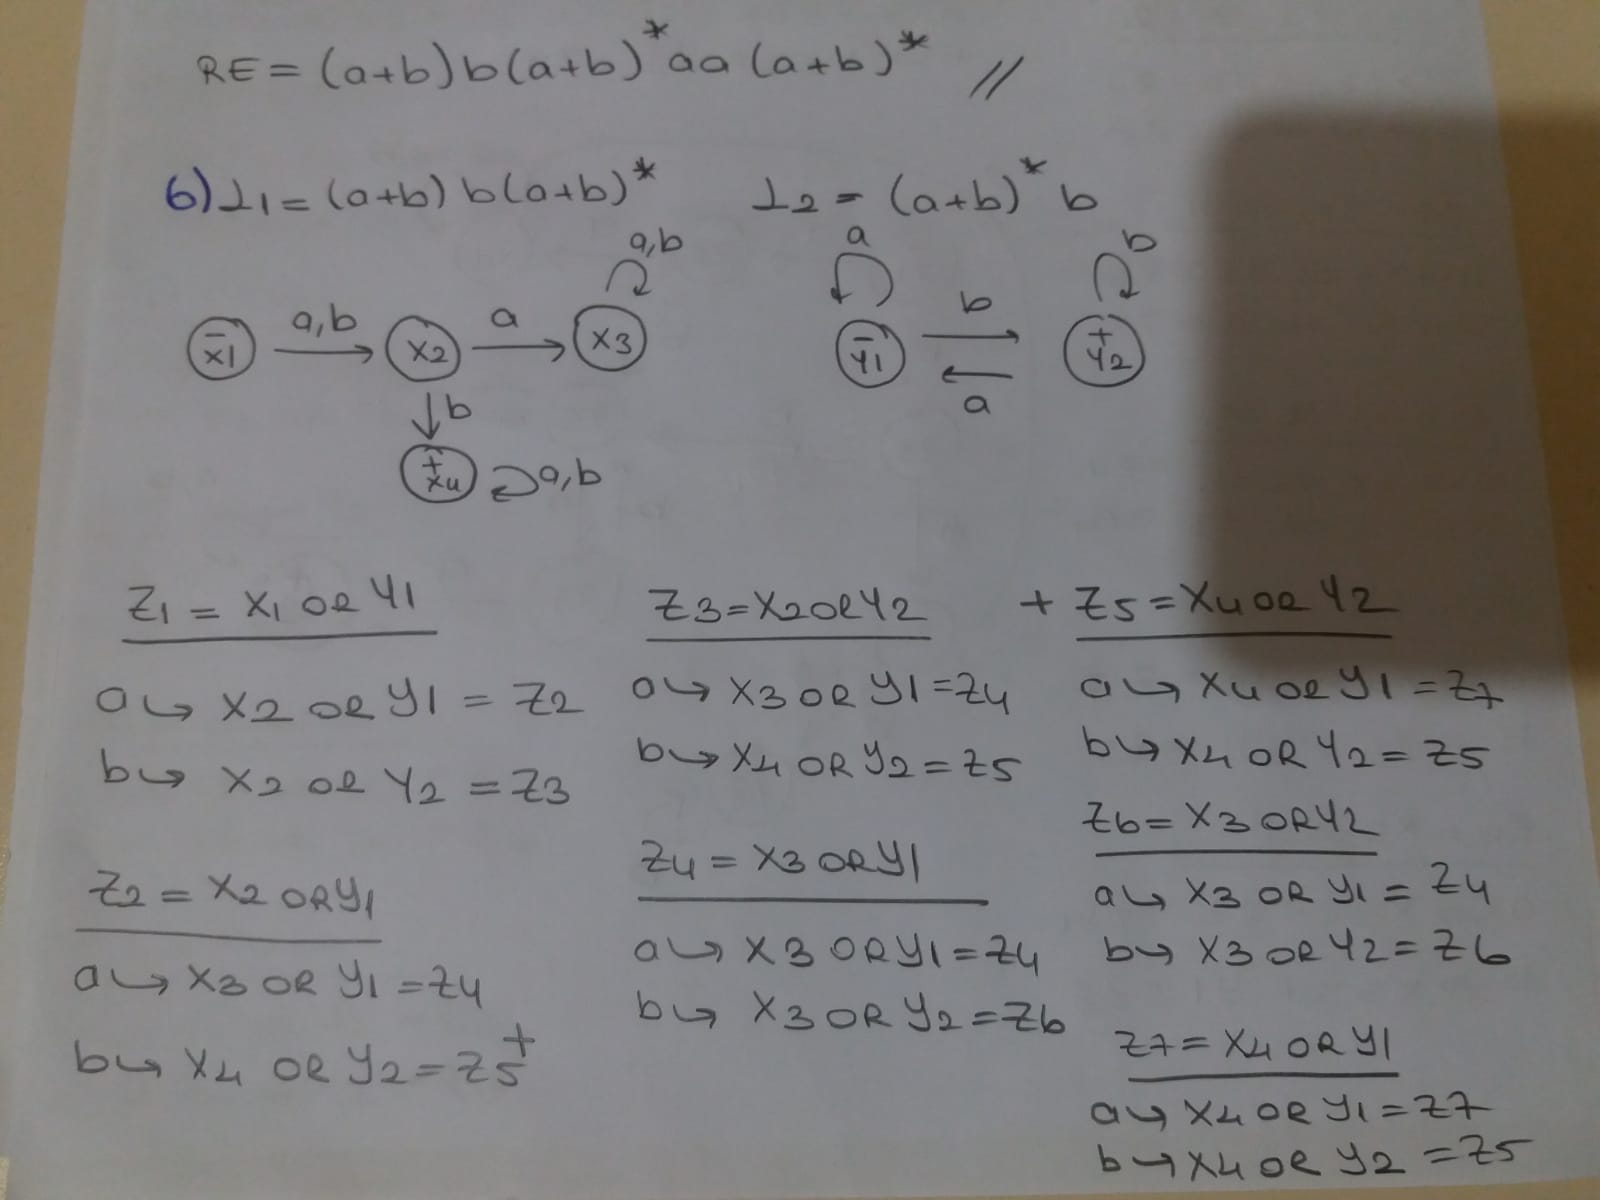 RE = (a+b)b(a+b)*aa(a+b)* //
6) L1 = (a+b) b(a+b)*
L2 = (a+b)* b
a,b
x̄1 a,b x2 a x3
b
+ x4 a,b
a b
ȳ1 b + y2
a
Z1 = X1 OR Y1
a↪ X2 OR Y1 = Z2
b↪ X2 OR Y2 = Z3
Z2 = X2 OR Y1
a↪ X3 OR Y1 = Z4
b↪ X4 OR Y2 = Z5+
Z3 = X2 OR Y2
a↪ X3 OR Y1 = Z4
b↪ X4 OR Y2 = Z5
Z4 = X3 OR Y1
a↪ X3 OR Y1 = Z4
b↪ X3 OR Y2 = Z6
+ Z5 = X4 OR Y2
a↪ X4 OR Y1 = Z7
b↪ X4 OR Y2 = Z5
Z6 = X3 OR Y2
a↪ X3 OR Y1 = Z4
b↪ X3 OR Y2 = Z6
Z7 = X4 OR Y1
a↪ X4 OR Y1 = Z7
b↪ X4 OR Y2 = Z5